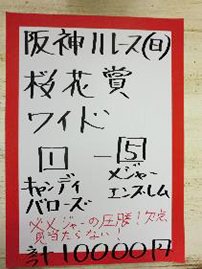 阪神11レース(日)
桜花賞
ワイド
1 - 5
キャンディ メジャー
バローズ エンスレム
メジャーの圧勝!欠点
見当たらない!
計10000円